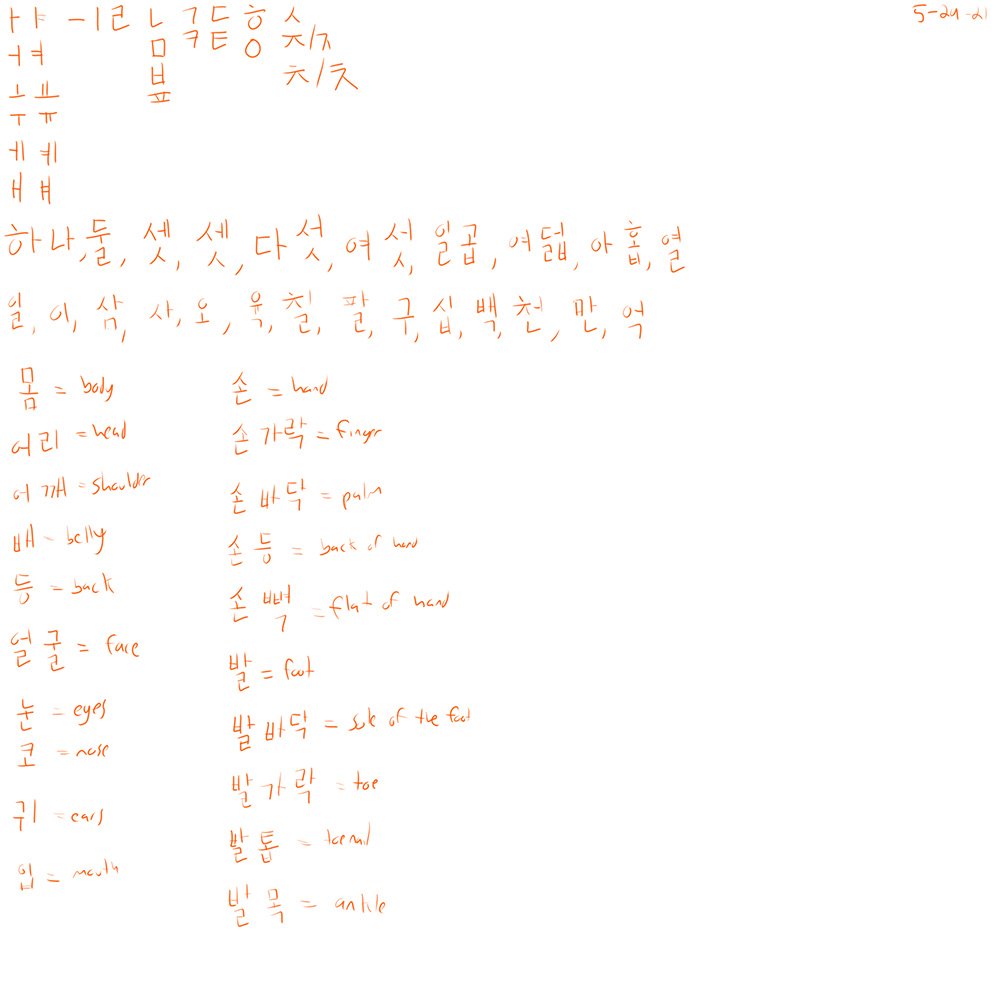 ㅏㅑ ㅡㅣㄹ ㄴ ㅁ ㅂ ㅍ ㄱ ㅋ ㄷ ㅌ ㅎ ㅇ ㅅ ㅈ/ㅈ ㅊ/ㅊ 5-24-21
ㅓㅕ
ㅗㅛ
ㅜㅠ
ㅔ ㅖ
ㅐ ㅒ
하나, 둘, 셋, 셋, 다섯, 여섯, 일곱, 여덟, 아홉, 열
일, 이, 삼, 사, 오, 육, 칠, 팔, 구, 십, 백, 천, 만, 억
몸 = body
머리 = head
어깨 = shoulder
배 = belly
등 = back
얼굴 = face
눈 = eyes
코 = nose
귀 = ears
입 = mouth
손 = hand
손가락 = finger
손바닥 = palm
손등 = back of hand
손뼉 = flat of hand
발 = foot
발바닥 = sole of the foot
발가락 = toe
발톱 = toenail
발목 = ankle